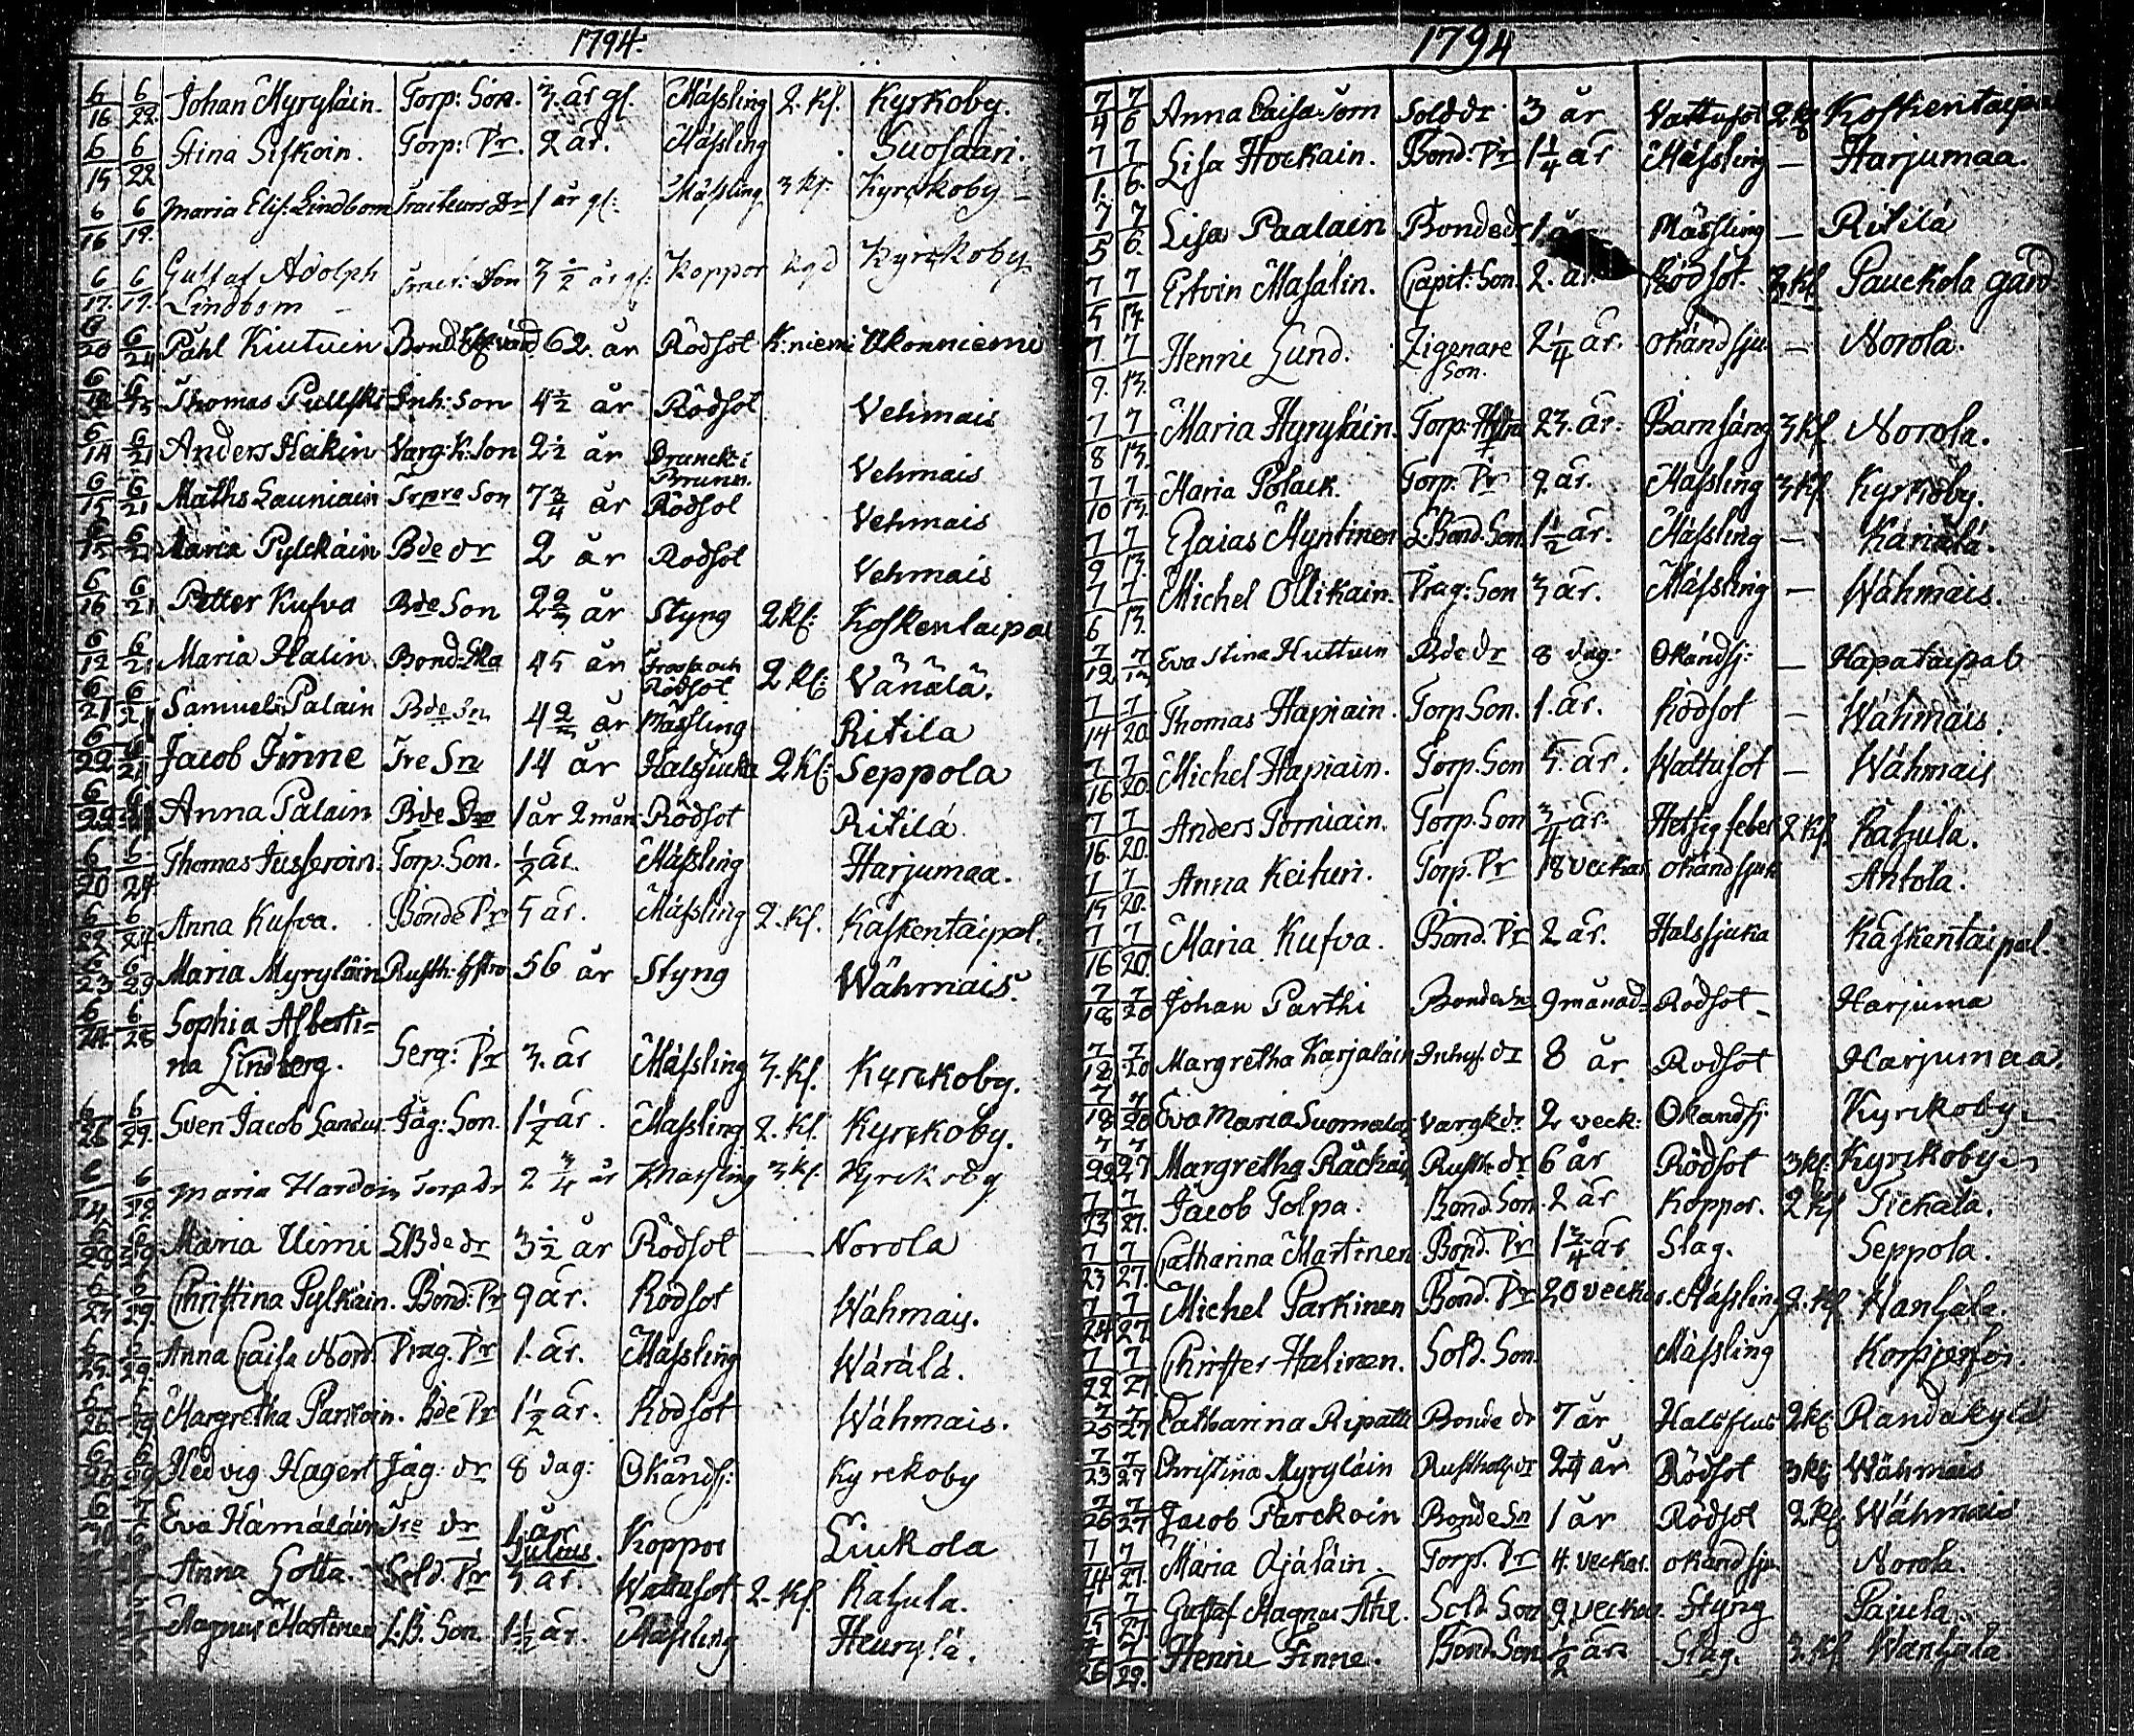 1794.
6/16 6/22 Johan Myryläin. Torp: Son. 3. år gl. Mässling 2. kl. Kyrkoby.
6/15 6/22 Stina Siskoin. Torp: Dr. 2 år. Mässling Suosaari.
6/16 6/19. Maria Elis: Lindbom Tracteurs Dr 1 år gl: Mässling 3 kl. Kyrckoby
6/17. 6/19. Gustaf Adolph Lindbom Tract: Son 3 1/2 år gl: Koppor Kyrckoby
6/20 6/24 Påhl Kiutuin 62. år Rödsot K:niemi Ukonniemi
Thomas Inh: Son 4 1/2 år Rödsot Vehmais
6/14 6/21 Anders Heikin Varg: K: Son 2 1/2 år Drunck: i Brunn. Vehmais
6/15 6/21 Maths Launiain Torpre Son 7 3/4 år Rödsot Vehmais
6/15 6/21 Maria Pylckäin Bde dr 2 år Rödsot Vehmais
6/16 6/21 Petter Kufva Bde Son 2 2/3 år Styng 2 kl: Koskentaipal
6/12 6/21 Maria Halin Bond: Eka 45 år Frossa och Rödsot 2 kl: Vänälä.
Samuel Palain Bde Sn 4 2/3 år Mässling Ritila
Jacob Finne Tre Sn 14 år Halssiuka 2 kl: Seppola
Anna Palain Bde Dr 1 år 2 mån: Rödsot Ritilä
6/20 6/24 Thomas Jusseroin: Torp. Son. 1/2 år. Mässling Harjumaa.
6/22 6/24 Anna Kufva. Bonde Dr 5 år. Mässling 2. kl. Käskentaipal.
6/23 6/29 Maria Myryläin Rusth: hstro 56 år Styng Wähmais.
6/24. 6/28 Sophia Alberti=
na Lindberg. Serg: Dr 3. år Mässling 3. kl. Kyrckoby.
6/26 6/29. Sven Jacob Jäg: Son. 1 1/2 år. Mässling 2. kl. Kyrckoby.
Maria Hardoin Torp Dr 2 3/4 år Mässling 3 kl. Kyrckoby
Maria Uimi LBde dr 3 1/2 år Rödsot — Norola
6/27 6/29. Christina Pylkäin. Bond: Dr 9 år. Rödsot Wähmais.
6/25. 6/29. Anna Caisa Nord. Drag. Dr 1. år. Mässling Wärälä.
6/26 6/29 Margretha Parkoin. Bde Dr 1 1/2 år. Rödsot Wähmais.
Hedvig Hagert Jäg: dr 8 dag: Okändsj: Kyrckoby
Eva Hämäläin Tre dr 1 år Koppor Liukola
Julius.
Anna Lotta. Sold. Dr 5 år. Wattusot. 2. kl. Kahula.
Magnus Martinen L.B. Son. 1 1/2 år. Mässling Heurylä.
1794
7/4 7/6 Anna Caisa Som Sold dr 3 år Vattusot 2 kl Koskentaipal
7/1. 7/6. Lisa Hockain. Bond: Dr 1 1/4 år Mässling — Harjumaa.
7/5 7/6. Lisa Paalain Bonde dr 1. år Mässling — Ritilä
7/5 7/13. Ertvin Masalin. Capit: Son. 2. år. Rödsot. 3 kl Pauckola gård
7/9. 7/13. Henric Lund. Zigenare Son. 2 1/4 år. okänd sju. — Norola.
7/8 7/13. Maria Hyryläin. Torp. Hstru 23. år. Barnsäng 3 kl. Norola.
7/10 7/13. Maria Polack. Torp. Dr 9. år. Mässling 3 kl Kyrkoby.
7/9 7/13. Esaias Myntinen L. Bond. Son. 1 1/2 år. Mässling — Kariälä.
7/6 7/13. Michel Ollikain. Drag: Son 3 år. Mässling — Wähmais.
7/12 7/13 Eva Stina Huttuin Bde Dr 8 dag: Okändsj: — Hapataipal
7/14 7/20 Thomas Hapiain. Torp Son. 1. år. Rödsot — Wähmais.
7/16 7/20. Michel Hapiain. Torp. Son 5. år. Wattusot — Wähmais
7/16. 7/20. Anders Torniain. Torp. Son 3/4 år. Hetsig feber 2 kl. Kahula.
7/15 7/20. Anna Keituri. Torp. Dr 18 veckor okänd sjuk Antola.
7/16 7/20. Maria Kufva. Bond. Dr 2 år. Halssjuka Käskentaipal.
7/18 7/20 Johan Parthi Bonde Sn 9 månad= Rödsot Harjuma
7/18 7/20 Margretha Karjaläin Inhys: dr 8 år Rödsot Harjumaa.
7/18 7/20 Eva Maria Suomalai vargk dr. 2 veck: Okändsj: Kyrckoby
7/22 7/27 Margretha Räckäin Rusth: dr 6 år Rödsot 3 kl: Kyrckoby
7/23 7/27. Jacob Tolpa. Bond. Son. 2 år Koppor. 2 kl Tickala.
7/23 7/27. Catharina Martinen Bond. Dr 1 3/4 år Slag. Seppola.
7/24 7/27. Michel Parkinen Bond. Dr 20 veckor. Mässling 2. kl Wanhala.
7/22 7/27. Christer Halinen. Sold. Son. Mässling
7/25 7/27 Catharina Ripatti Bonde dr 7 år Halsflus 2 kl: Randakylä
7/23 7/27 Christina Myryläin Rusthols dr 24 år Rödsot 3 kl: Wähmais
7/26 7/27 Jacob Parckoin Bonde Sn 1 år Rödsot 2 kl: Wähmais
7/24 7/27. Maria Ojäläin. Torp. Dr 4. veckor. okänd sju. Norola.
7/25 7/27. Gustaf Magnus Sold. Son 9 veckor. Styng Pajula.
7/26 7/29. Henric Finne. Bond. Son 1/2 år. Slag. 3. kl Wanhala.